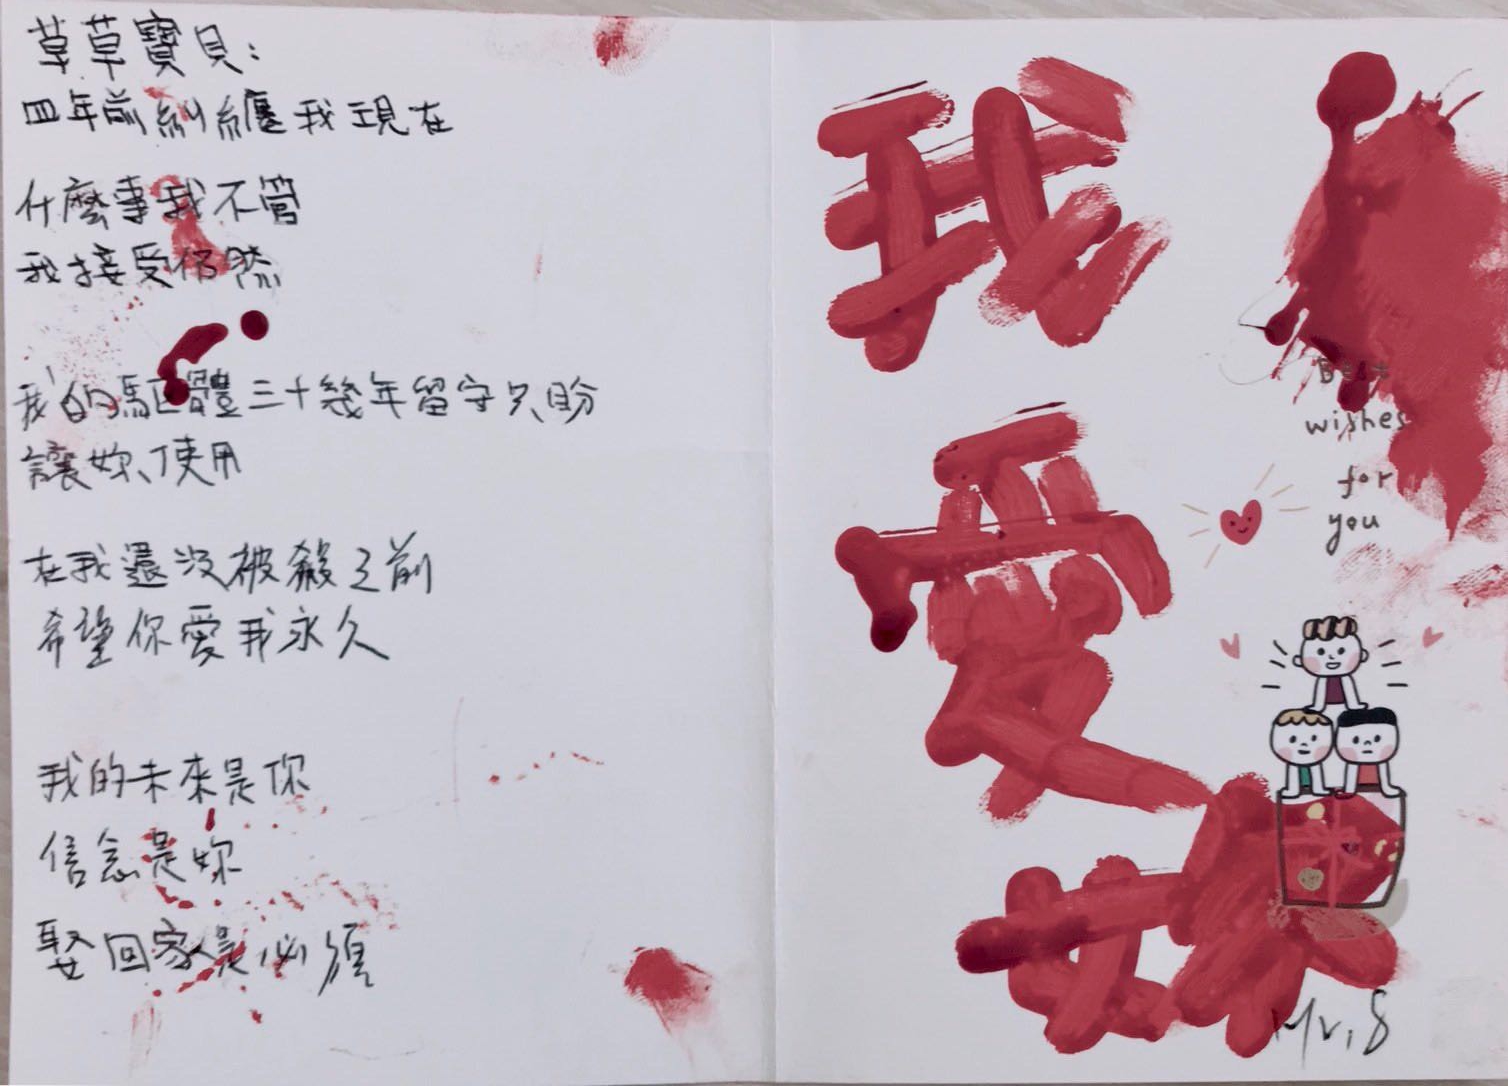 草草寶貝:
四年前糾纏我現在
什麼事我不管
我接受你
我的軀體三十幾年留守只盼
讓妳使用
在我還沒被殺之前
希望你愛我永久
我的未來是你
信念是妳
娶回家是必須
我
愛
妳
Best
wishes
for
you
Mr. S